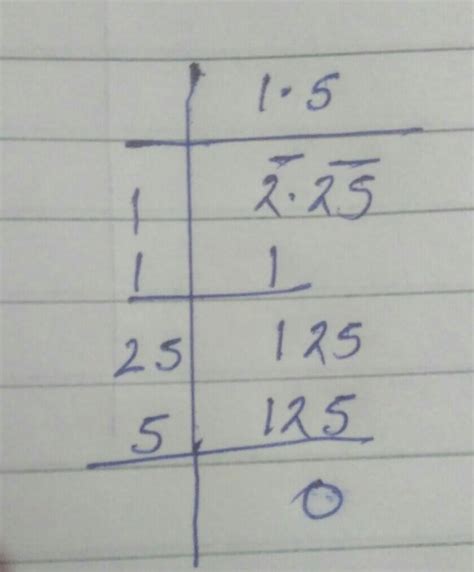 1.5
1 2.25
1 1
25 125
5 125
0